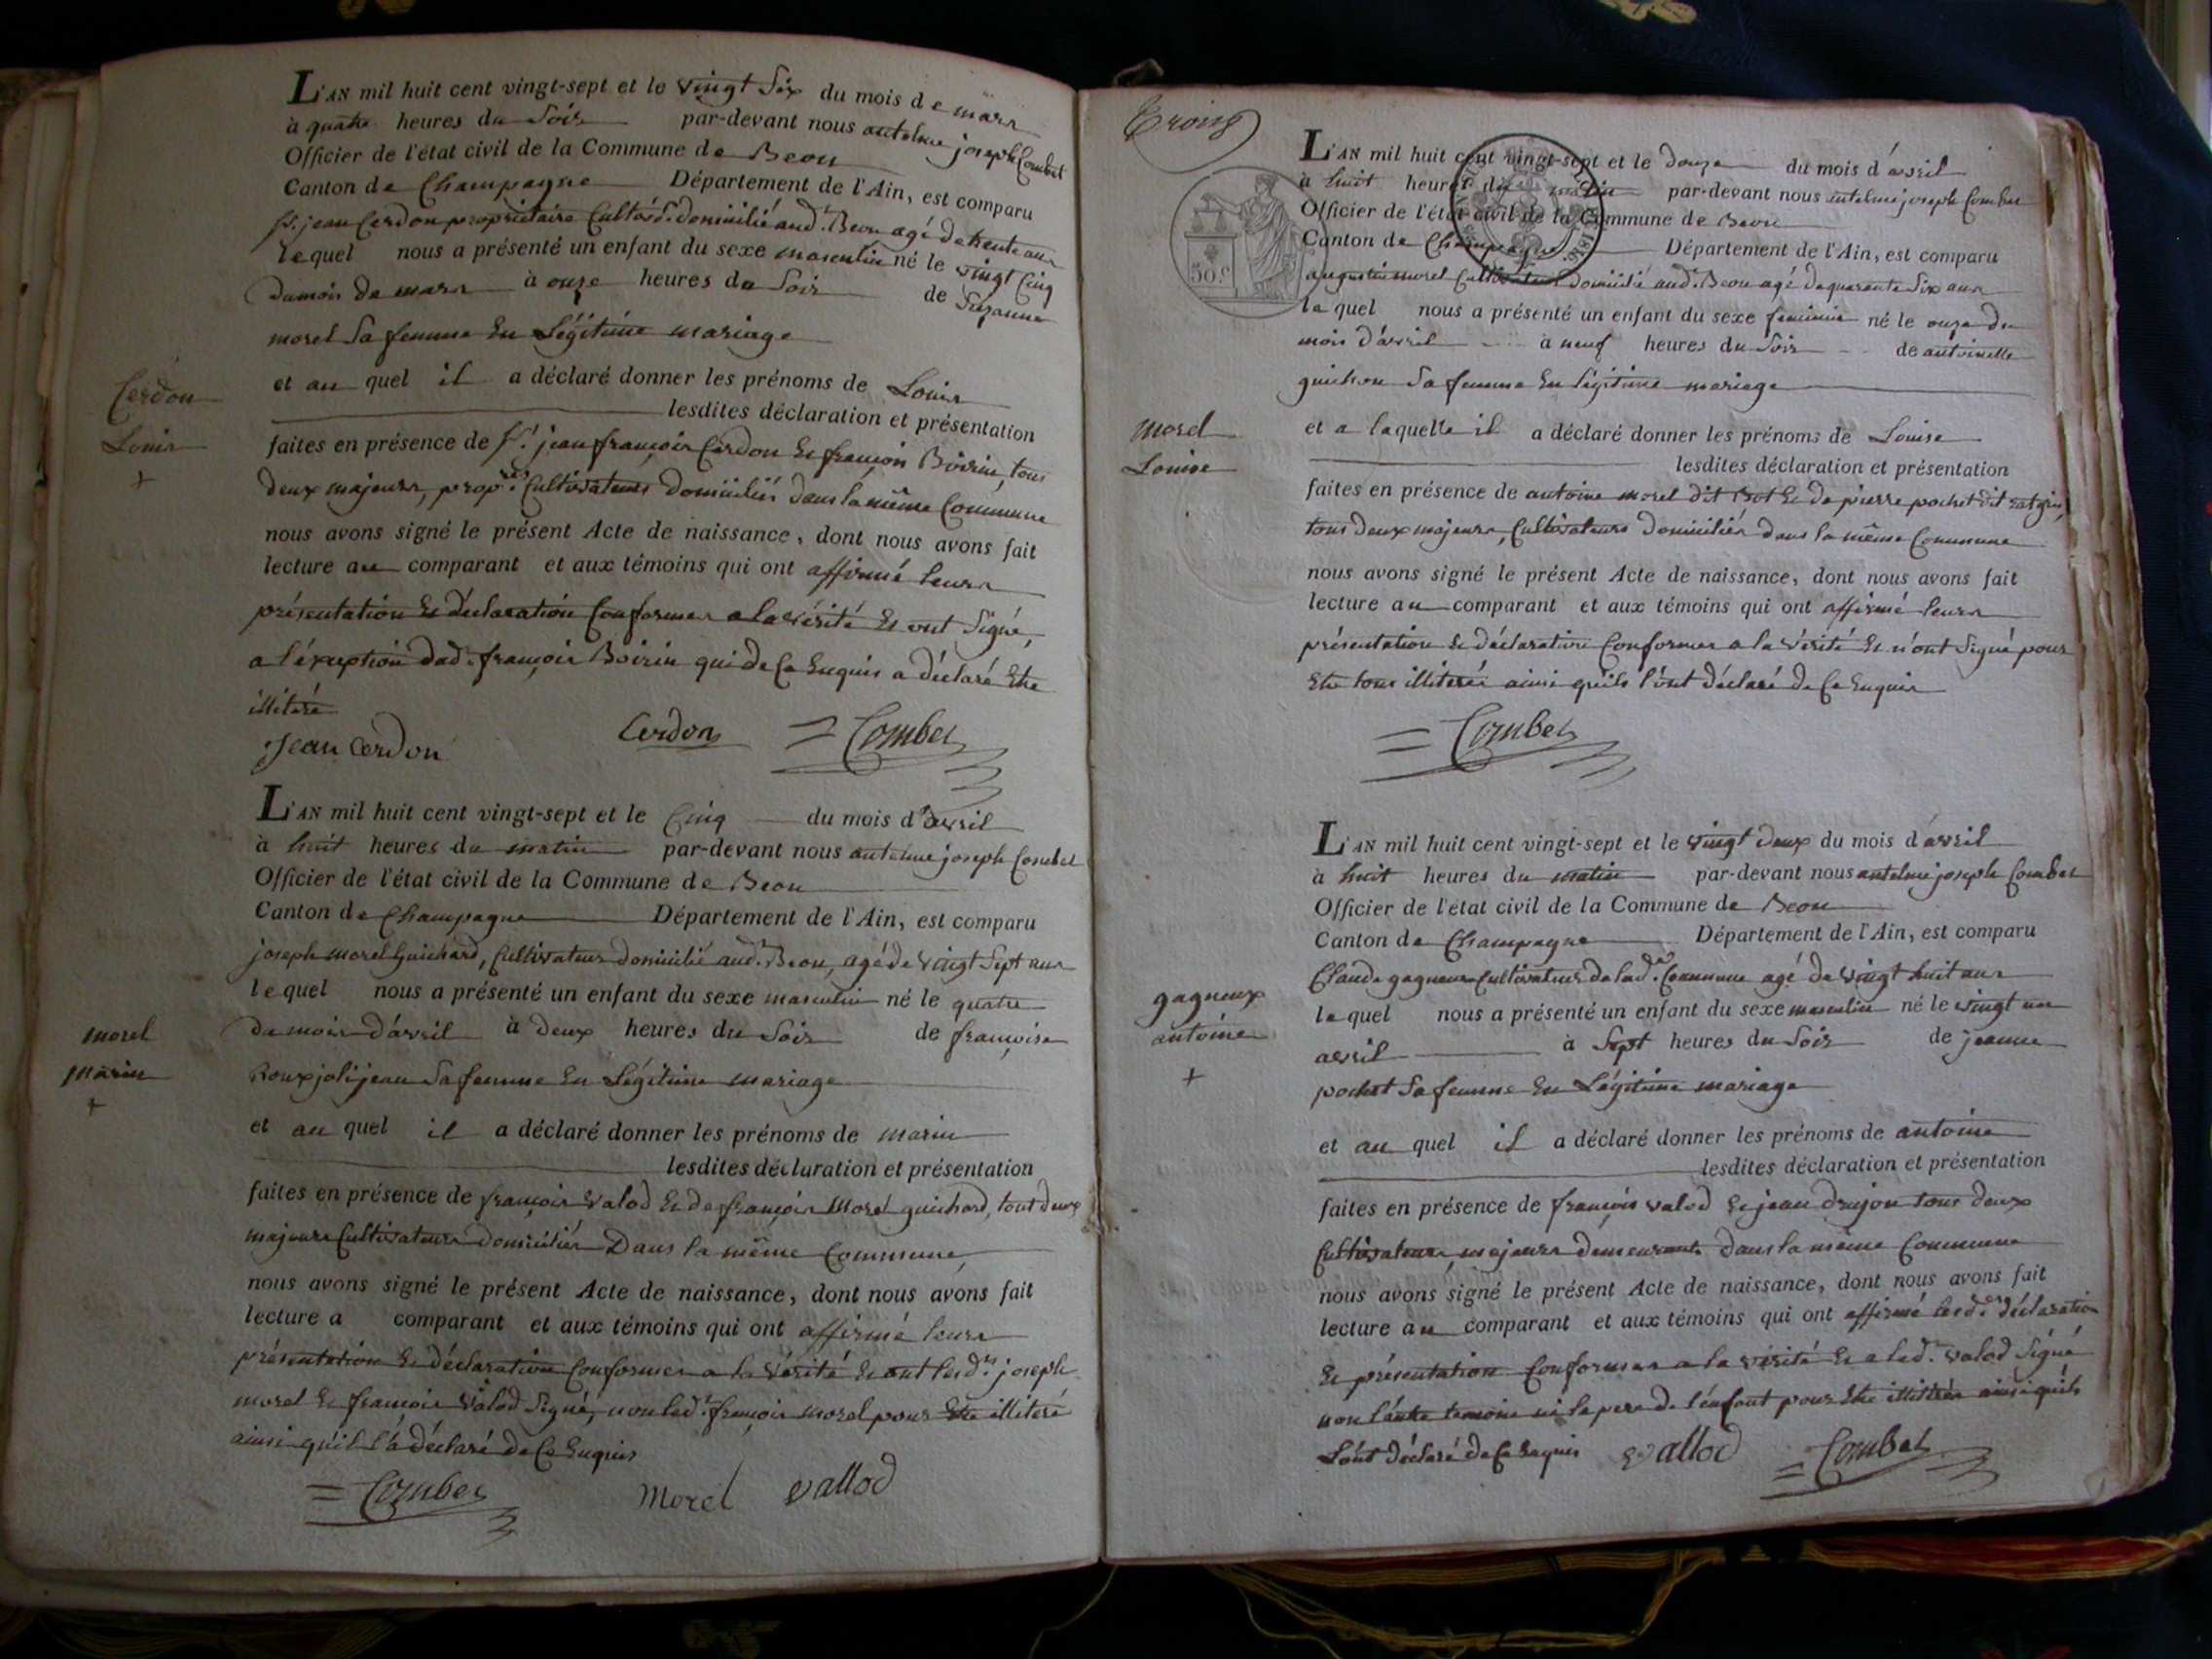 L'AN mil huit cent vingt-sept et le vingt six du mois de mars
à quatre heures du soir par-devant nous antelme joseph Combet
Officier de l'état civil de la Commune de Beon
Canton de Champagne Département de l'Ain, est comparu
Sr. jean Cerdon propriétaire Cultivr. domicilié aud. Beon agé de trente ans
lequel nous a présenté un enfant du sexe masculin né le vingt Cinq
du mois de mars à onze heures du soir de Suzanne
morel sa femme En Légitime mariage
Cerdon
Louis
+
et au quel il a déclaré donner les prénoms de Louis
lesdites déclaration et présentation
faites en présence de Sr. jean françois Cerdon Et françois Boirin, tous
deux majeurs, propres. Cultivateurs domiciliés dans la même Commune
nous avons signé le présent Acte de naissance, dont nous avons fait
lecture au comparant et aux témoins qui ont affirmé leurs
présentation Et déclaration Conformes a la vérité Et ont signé,
a l'éxeption dud. françois Boirin qui de Ce Enquis a déclaré Etre
illitéré
Jean Cerdon Cerdon = Combet
L'AN mil huit cent vingt-sept et le Cinq du mois d'avril
à huit heures du matin par-devant nous antelme joseph Combet
Officier de l'état civil de la Commune de Beon
Canton de Champagne Département de l'Ain, est comparu
joseph morel Guichard, Cultivateur domicilié aud. Beon, agé de vingt sept ans
lequel nous a présenté un enfant du sexe masculin né le quatre
du mois d'avril à deux heures du soir de françoise
Roux joli jean sa femme En Légitime mariage
morel
marin
+
et au quel il a déclaré donner les prénoms de marin
lesdites déclaration et présentation
faites en présence de françois valod Et de françois Morel guichard, tout deux
majeurs Cultivateurs domiciliés Dans la même Commune,
nous avons signé le présent Acte de naissance, dont nous avons fait
lecture a comparant et aux témoins qui ont affirmé leurs
présentation Et déclaration Conformes a la vérité Et ont lesds. joseph
morel Et françois valod signé, non led. françois morel pour Etre illiteré
ainsi qu'il l'a déclaré de Ce Enquis
= Combet Morel vallod
Trois
L'AN mil huit cent vingt-sept et le douze du mois d'avril
à huit heures du matin par-devant nous antelme joseph Combet
Officier de l'état civil de la Commune de Beon
Canton de Champagne Département de l'Ain, est comparu
50 c
augustin morel Cultivateur domicilié aud. Beon agé de quarante six ans
la quel nous a présenté un enfant du sexe féminin né le onze du
mois d'avril à neuf heures du soir de antoinette
guichon sa femme En légitime mariage
morel
Louise
et a laquelle il a déclaré donner les prénoms de Louise
lesdites déclaration et présentation
faites en présence de antoine morel dit Bot Et de pierre pochet dit
tous deux majeurs, Cultivateurs domiciliés dans la même Commune
nous avons signé le présent Acte de naissance, dont nous avons fait
lecture au comparant et aux témoins qui ont affirmé leurs
présentation Et déclaration Conformes a la vérité Et n'ont signé pour
Etre tous illiterés ainsi qu'ils l'ont déclaré de Ce Enquis
= Combet
L'AN mil huit cent vingt-sept et le vingt deux du mois d'avril
à huit heures du matin par-devant nous antelme joseph Combet
Officier de l'état civil de la Commune de Beon
Canton de Champagne Département de l'Ain, est comparu
Claude gagneux Cultivateur de lad. Commune agé de vingt huit ans
lequel nous a présenté un enfant du sexe masculin né le vingt un
avril à sept heures du soir de jeanne
pochet sa femme En Légitime mariage
gagneux
antoine
+
et au quel il a déclaré donner les prénoms de antoine
lesdites déclaration et présentation
faites en présence de françois valod Et jean drujon tous deux
Cultivateurs, majeurs demeurants dans la même Commune
nous avons signé le présent Acte de naissance, dont nous avons fait
lecture au comparant et aux témoins qui ont affirmé lesd. déclaration
Et présentation Conformes a la vérité Et a led. valod signé
non l'autre temoin ni le pere de l'enfant pour Etre illitérés ainsi qu'ils
L'ont déclaré de Ce Enquis vallod = Combet